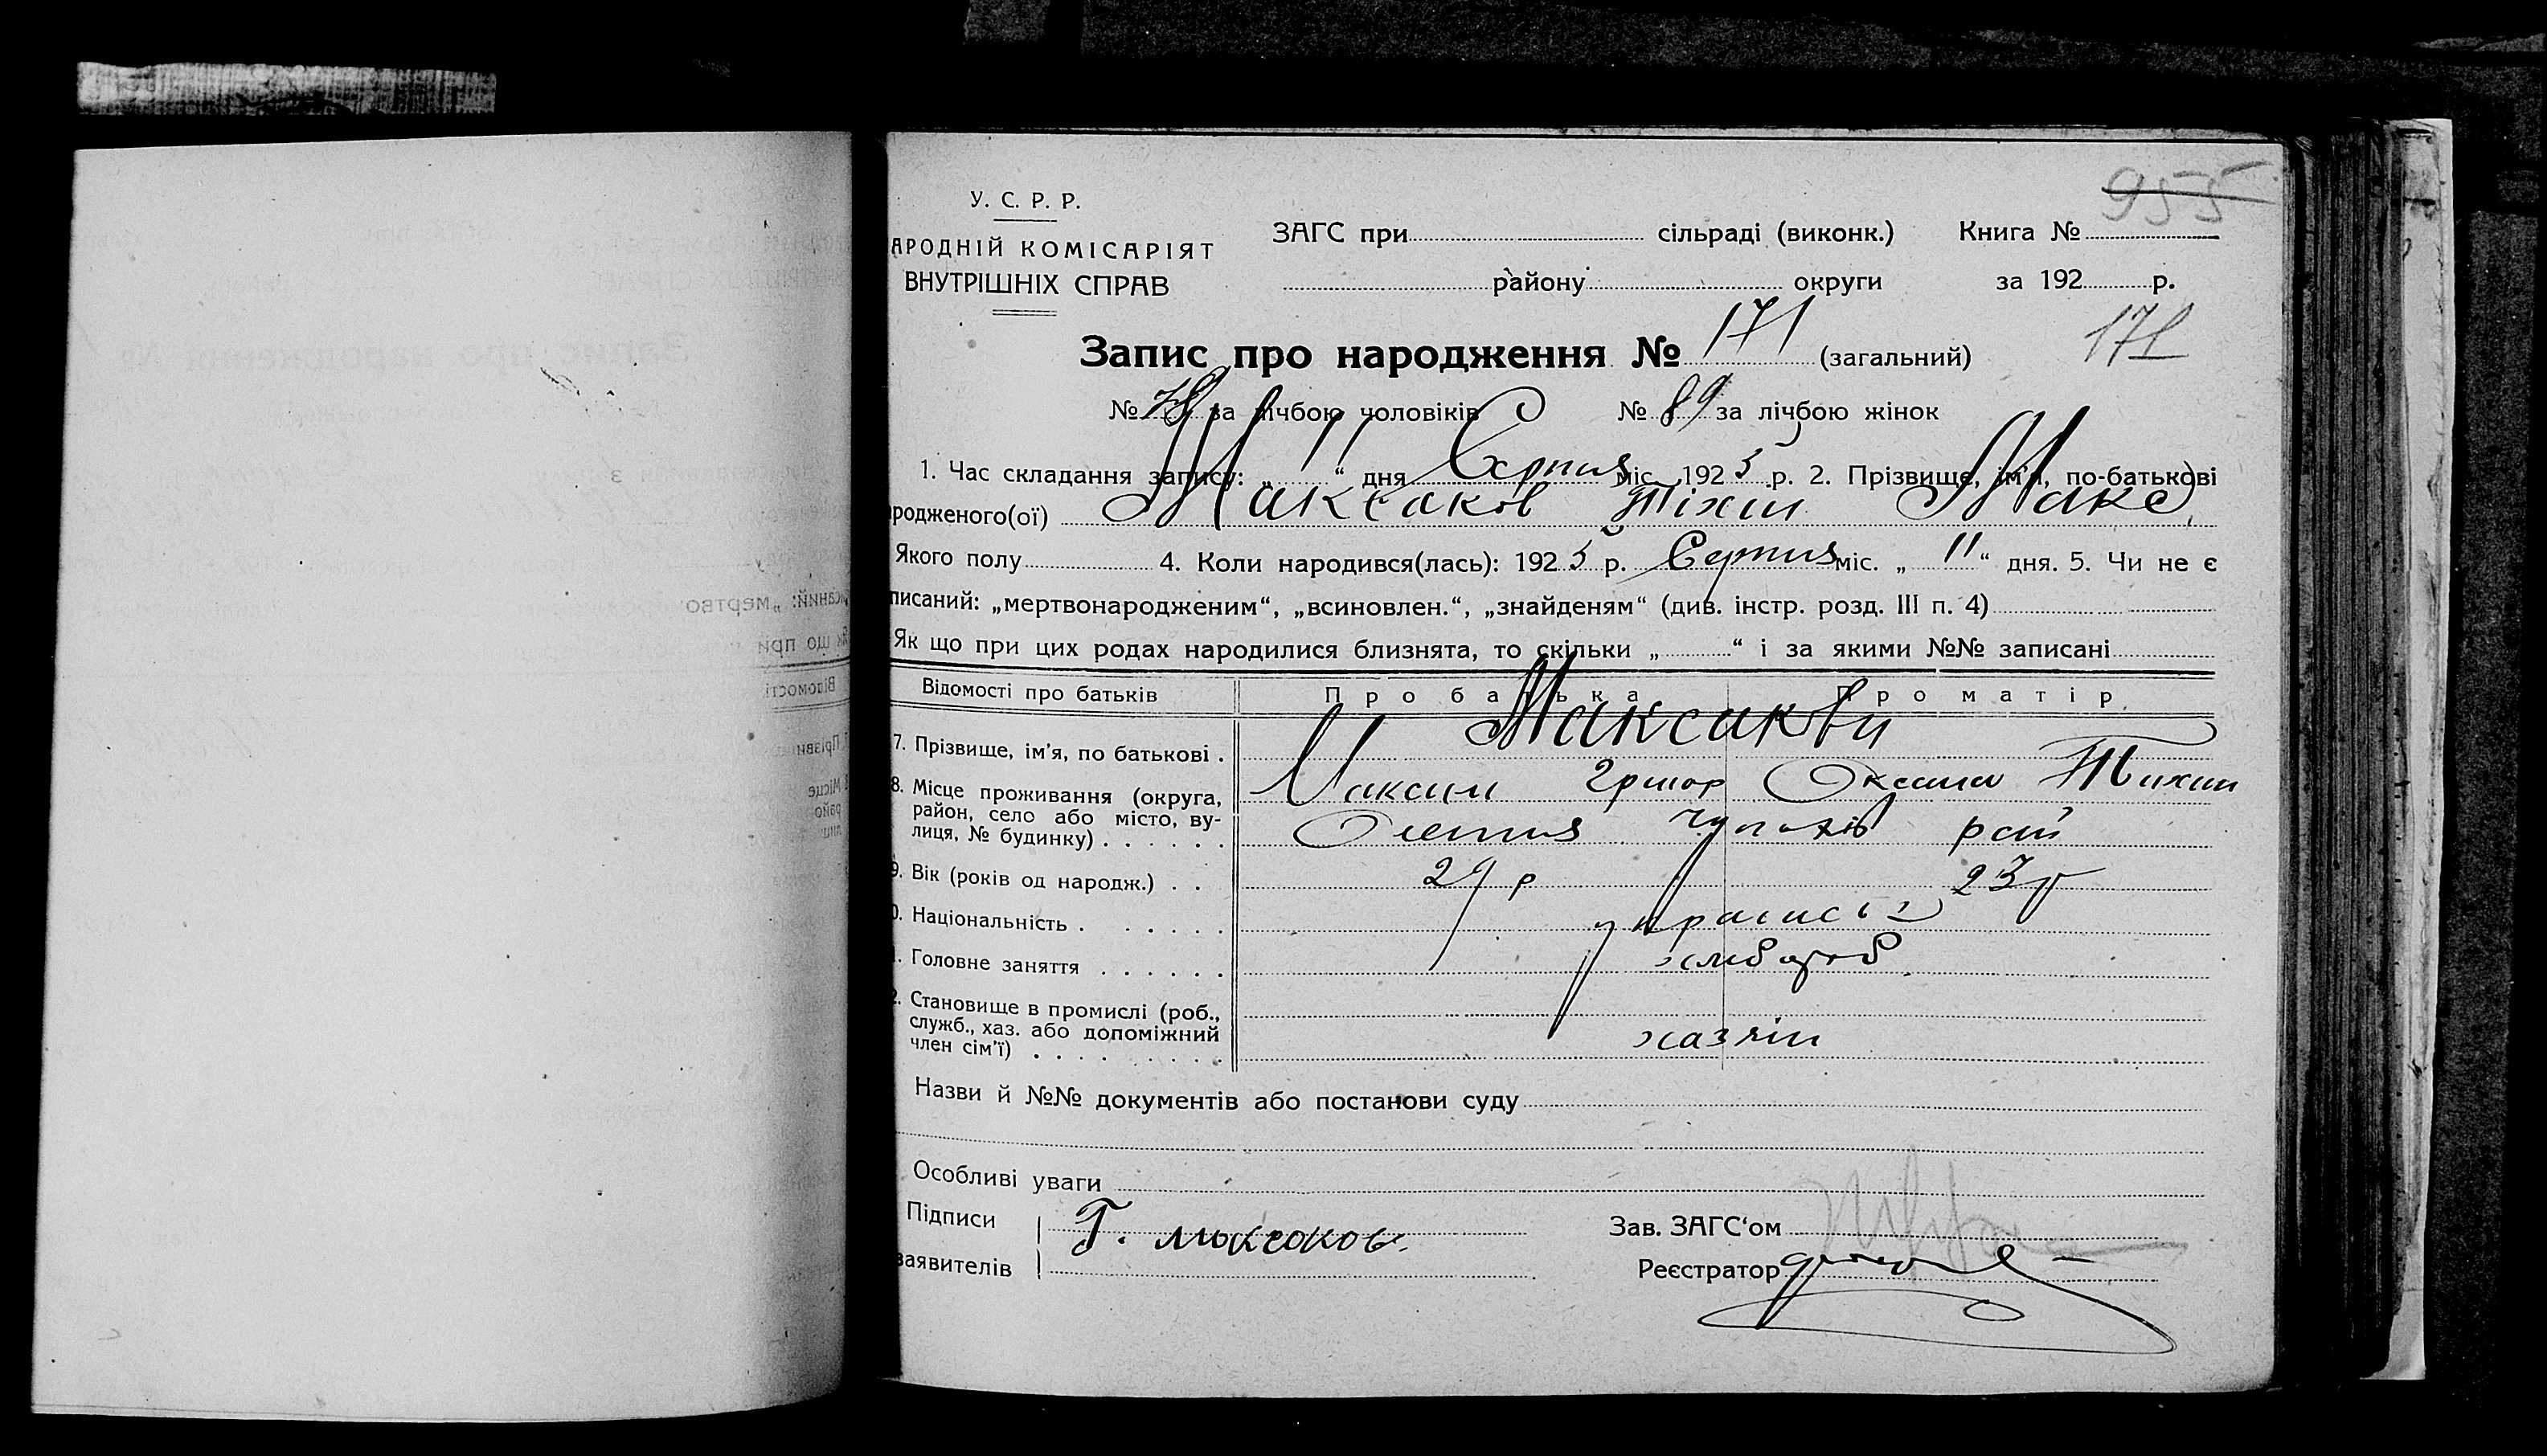 955
У. С. Р. Р.
АРОДНІЙ КОМІСАРІЯТ
ВНУТРІШНІХ СПРАВ
ЗАГС при сільраді (виконк.) Книга №
району округи за 192 р.
171
Запис про народження № 171 (загальний)
№ 78 за лічбою чоловіків № 89 за лічбою жінок
1. Час складання запису: „ 11 “ дня Серпня міс. 1925 р. 2. Прізвище, ім'я, по-батькові
родженого(ої) Максаков Тіхін Макс
Якого полу 4. Коли народився(лась): 1925 р. Серпня міс. „ 11 “ дня. 5. Чи не є
писаний: „мертвонародженим“, „всиновлен.“, „знайденям“ (див. інстр. розд. III п. 4)
Як що при цих родах народилися близнята, то скільки „ “ і за якими №№ записані
Відомості про батьків Про батька Про матір
Максакови
7. Прізвище, ім'я, по батькові . Максим Григор Оксана Тихин
8. Місце проживання (округа,
район, село або місто, ву-
лиця, № будинку) . . . . . .
9. Вік (років од народж.) . . 29 р 23 р
0. Національність . . . . . .
1. Головне заняття . . . . . . хлібороб
2. Становище в промислі (роб.,
служб., хаз. або допоміжний
член сім'ї) . . . . . . . . . хазяїн
Назви й №№ документів або постанови суду
Особливі уваги
Підписи Т. Максаков Зав. ЗАГС'ом
заявителів Реєстратор